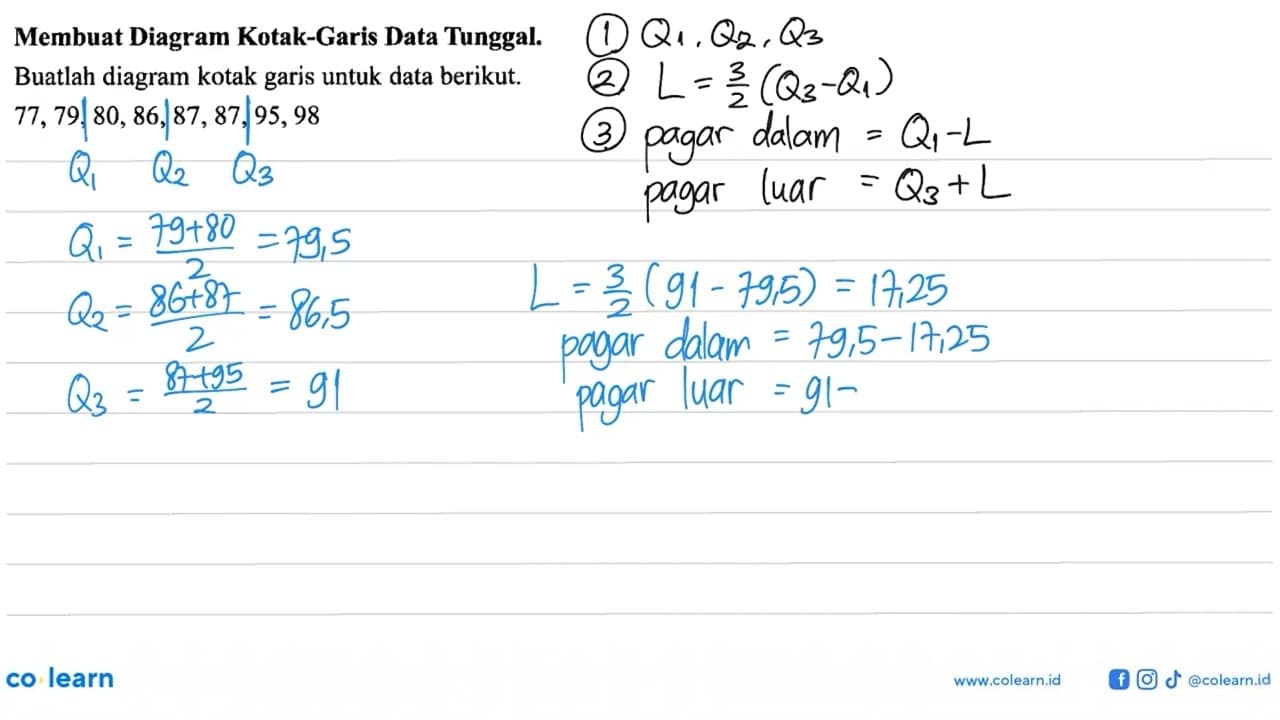 Membuat Diagram Kotak-Garis Data Tunggal.
Buatlah diagram kotak garis untuk data berikut.
77, 79, 80, 86, 87, 87, 95, 98
Q₁ Q₂ Q₃
Q₁ = (79+80)/2 = 79,5
Q₂ = (86+87)/2 = 86,5
Q₃ = (87+95)/2 = 91
① Q₁, Q₂, Q₃
② L = 3/2 (Q₃-Q₁)
③ pagar dalam = Q₁-L
pagar luar = Q₃+L
L = 3/2 (91 - 79,5) = 17,25
pagar dalam = 79,5-17,25
pagar luar = 91-
co learn
www.colearn.id
@colearn.id